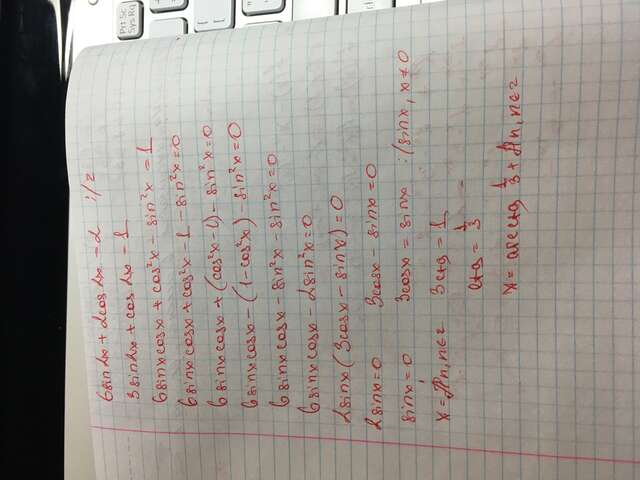 6sin2x + 2cos2x - 2 :/2
3sin2x + cos2x - 1
6sinxcosx + cos²x - sin²x = 1
6sinxcosx + cos²x - 1 - sin²x = 0
6sinxcosx + (cos²x - 1) - sin²x = 0
6sinxcosx - (1 - cos²x) - sin²x = 0
6sinxcosx - sin²x - sin²x = 0
6sinxcosx - 2sin²x = 0
2sinx(3cosx - sinx) = 0
2sinx = 0 3cosx - sinx = 0
sinx = 0 3cosx = sinx :/sinx, x ≠ 0
x = πn, n∈z 3ctg = 1
ctg = 1/3
x = arcctg 1/3 + πn, n∈z
Prt Sc
Sys Rq